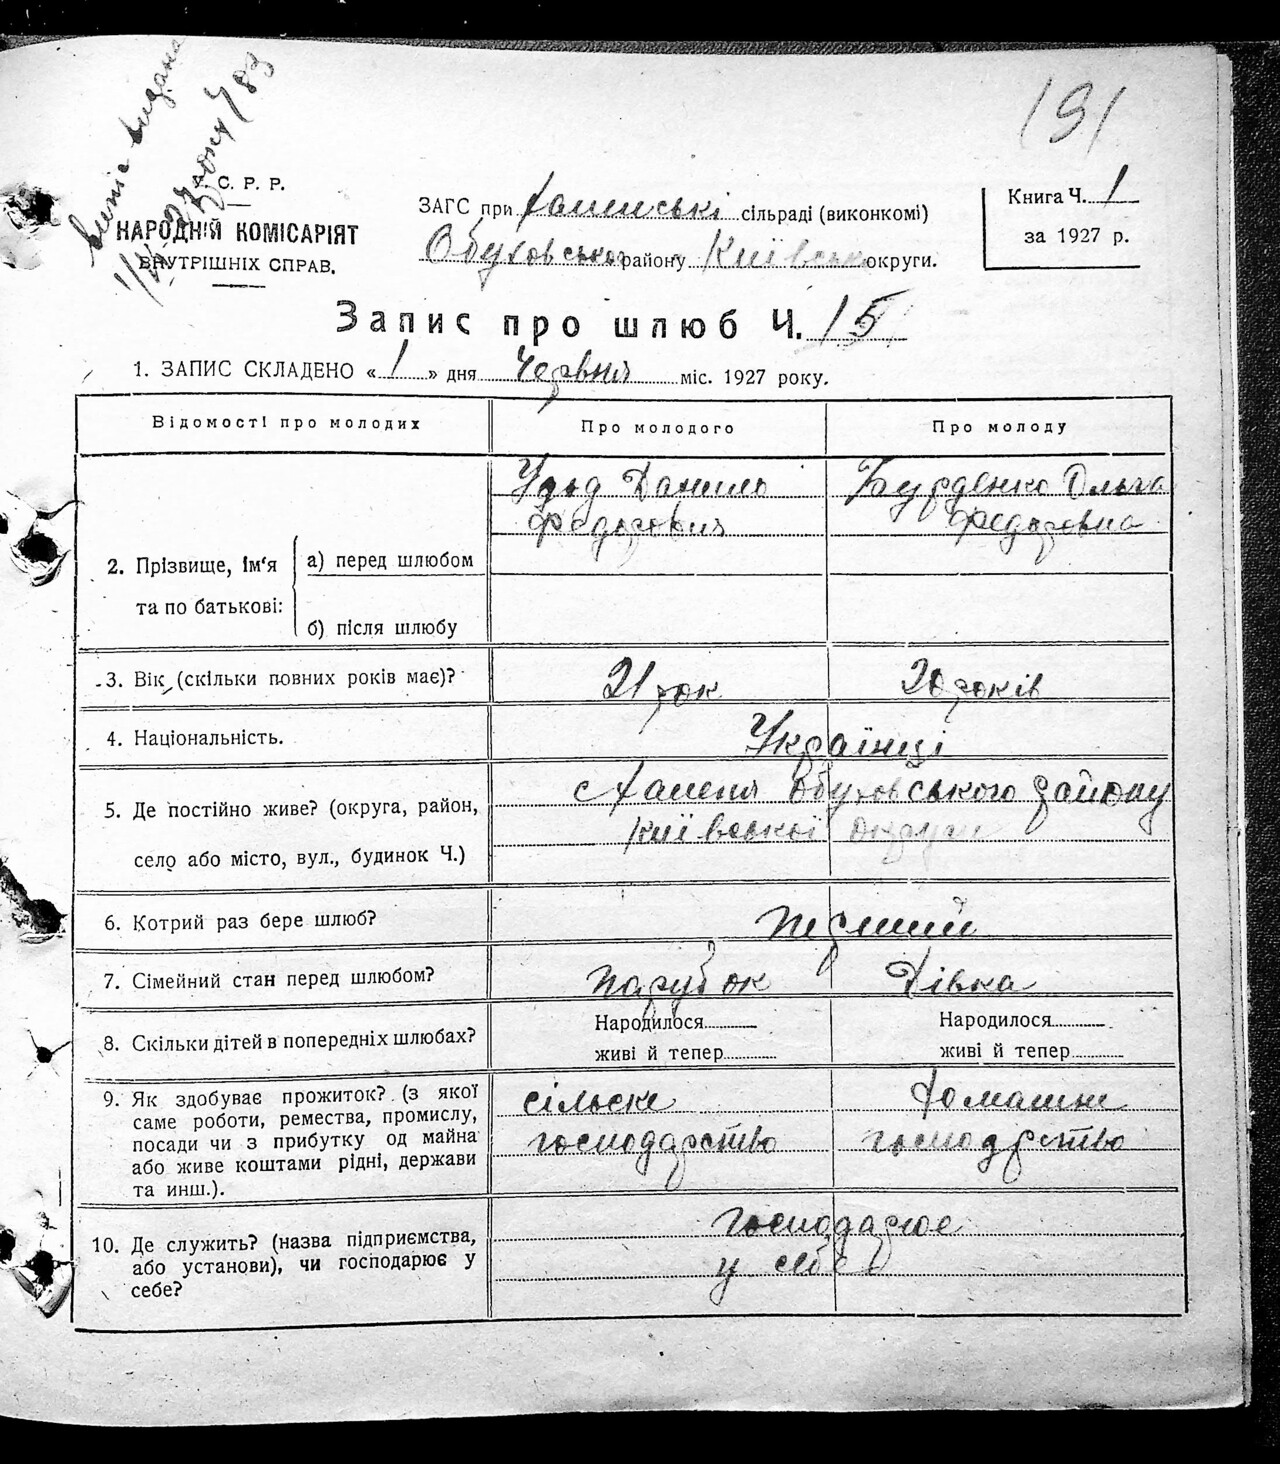 191
випис видана
С. Р. Р.
НАРОДНІЙ КОМІСАРІЯТ
ВНУТРІШНІХ СПРАВ.
ЗАГС при сільраді (виконкомі)
Обуховського району Київськ округи.
Книга Ч. 1
за 1927 р.
Запис про шлюб Ч. 15
1. ЗАПИС СКЛАДЕНО «1» дня Червня міс. 1927 року.
Відомості про молодих Про молодого Про молоду
Данило Бурденко Ольга
Федорович Федоровна
2. Прізвище, ім'я та по батькові:
а) перед шлюбом
б) після шлюбу
3. Вік (скільки повних років має)? 21 рок 20 років
4. Національність. Українці
5. Де постійно живе? (округа, район, с Обуховського району
село або місто, вул., будинок Ч.) Київської округи
6. Котрий раз бере шлюб? перший
7. Сімейний стан перед шлюбом? парубок Дівка
8. Скільки дітей в попередніх шлюбах? Народилося Народилося
живі й тепер живі й тепер
9. Як здобуває прожиток? (з якої сільске домашне
саме роботи, ремества, промислу, господарство господрство
посади чи з прибутку од майна
або живе коштами рідні, держави
та инш.).
10. Де служить? (назва підприємства, господарює
або установи), чи господарює у у себе
себе?